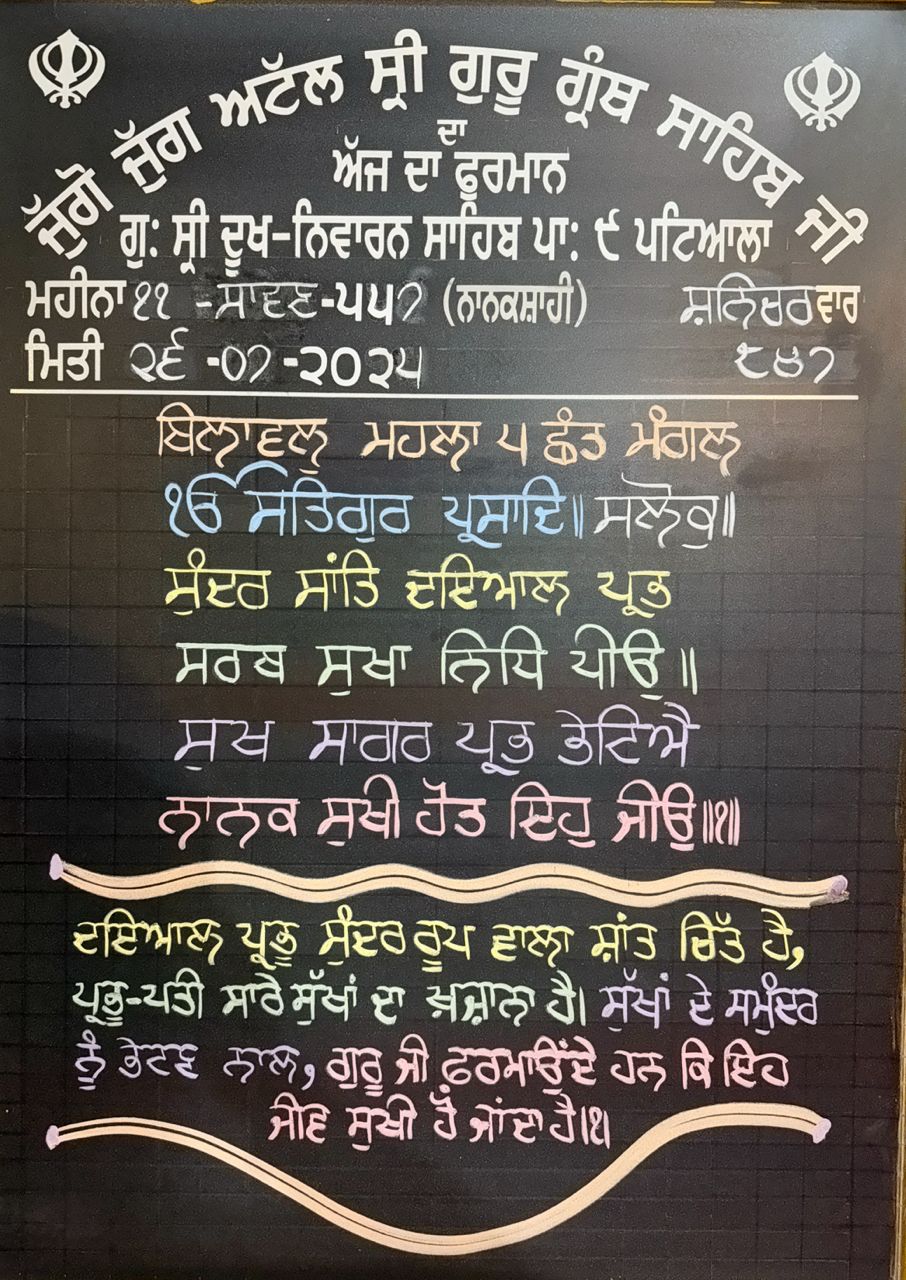 ਜੁੱਗੋ ਜੁੱਗ ਅਟੱਲ ਸ੍ਰੀ ਗੁਰੂ ਗ੍ਰੰਥ ਸਾਹਿਬ ਜੀ
ਦਾ
ਅੱਜ ਦਾ ਫੁਰਮਾਨ
ਗੁ: ਸ੍ਰੀ ਦੂਖ-ਨਿਵਾਰਨ ਸਾਹਿਬ ਪਾ: ੯ ਪਟਿਆਲਾ
ਮਹੀਨਾ ੧੧ -ਸਾਵਣ-੫੫੭ (ਨਾਨਕਸ਼ਾਹੀ) ਸ਼ਨਿਚਰਵਾਰ
ਮਿਤੀ ੨੬ -੦੭ -੨੦੨੫ ੮੪੭
ਬਿਲਾਵਲੁ ਮਹਲਾ ੫ ਛੰਤ ਮੰਗਲ
ੴ ਸਤਿਗੁਰ ਪ੍ਰਸਾਦਿ॥ ਸਲੋਕੁ॥
ਸੁੰਦਰ ਸਾਂਤਿ ਦਇਆਲ ਪ੍ਰਭ
ਸਰਬ ਸੁਖਾ ਨਿਧਿ ਪੀਉ॥
ਸੁਖ ਸਾਗਰ ਪ੍ਰਭ ਭੇਟਿਐ
ਨਾਨਕ ਸੁਖੀ ਹੋਤ ਇਹੁ ਜੀਉ॥੧॥
ਦਇਆਲ ਪ੍ਰਭੂ ਸੁੰਦਰ ਰੂਪ ਵਾਲਾ ਸ਼ਾਂਤ ਚਿੱਤ ਹੈ,
ਪ੍ਰਭੂ-ਪਤੀ ਸਾਰੇ ਸੁੱਖਾਂ ਦਾ ਖ਼ਜ਼ਾਨਾ ਹੈ। ਸੁੱਖਾਂ ਦੇ ਸਮੁੰਦਰ
ਨੂੰ ਭੇਟਣ ਨਾਲ, ਗੁਰੂ ਜੀ ਫ਼ਰਮਾਉਂਦੇ ਹਨ ਕਿ ਇਹ
ਜੀਵ ਸੁਖੀ ਹੋ ਜਾਂਦਾ ਹੈ।੧।